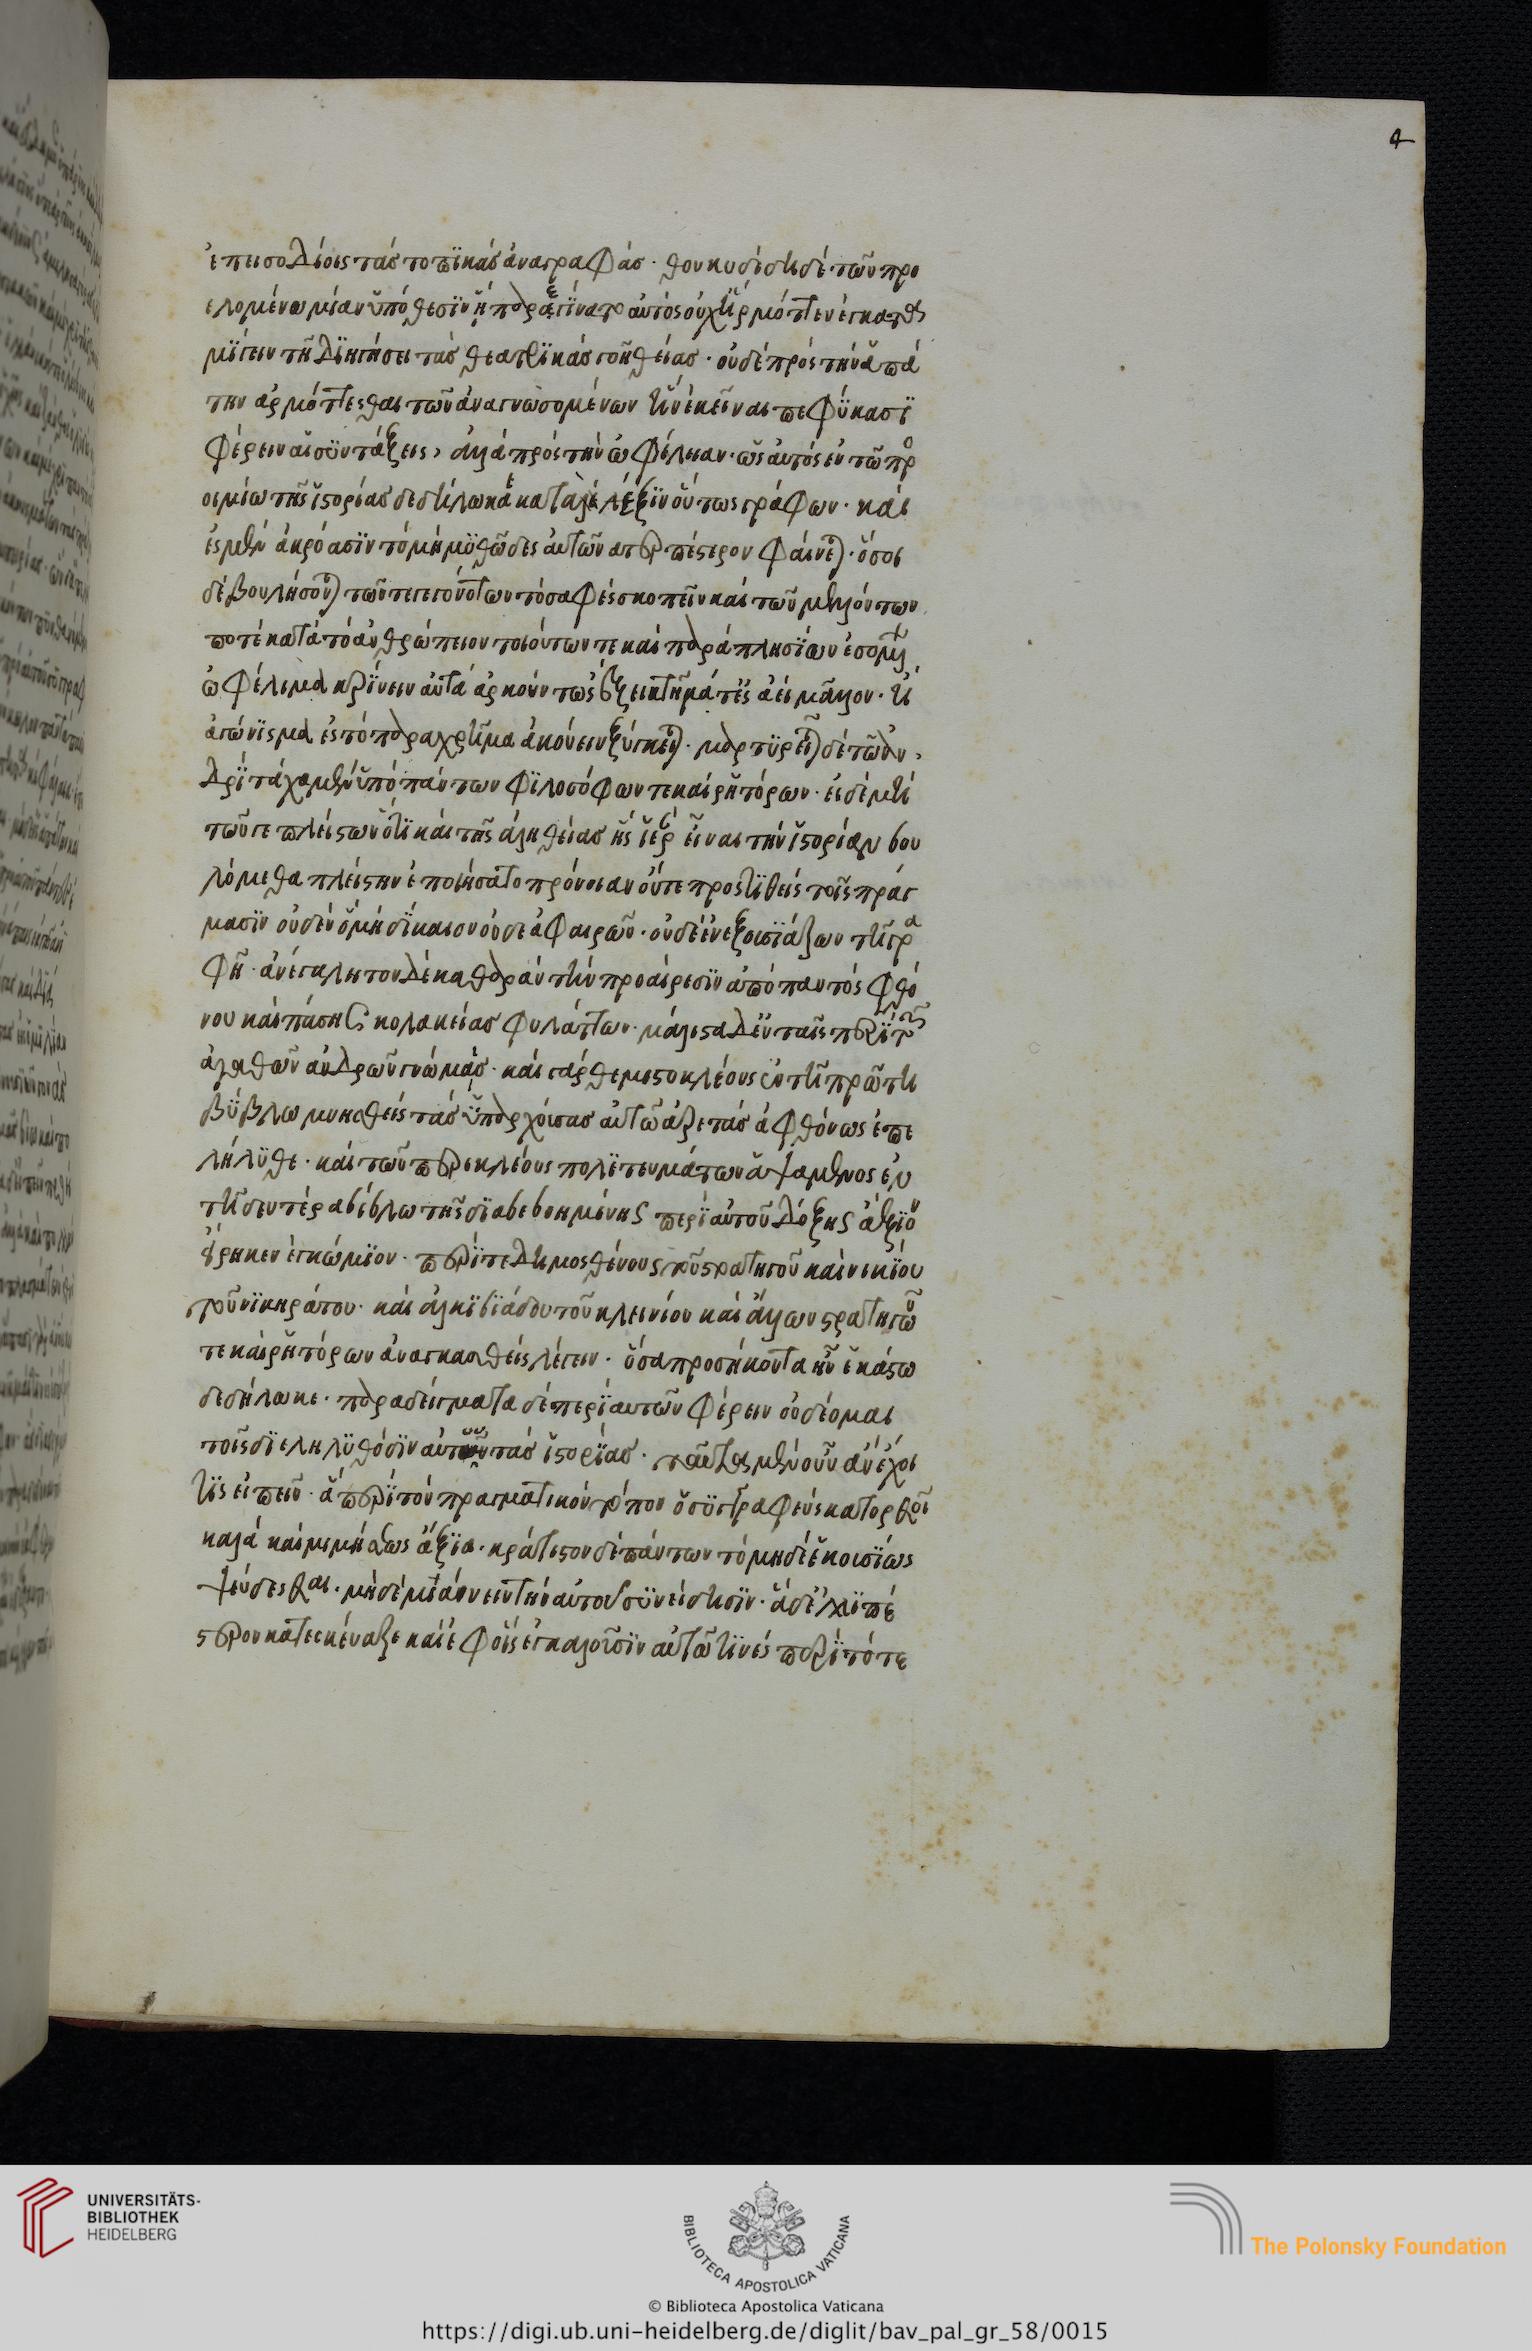 4
ἐπεισοδίοις τὰς τοπϊκὰς ἀναγραφάς · θουκυδίδη δὲ τῶν προ
ελομένω μίαν ὑπόθεσϊν ἧ παρεγίνατο αὐτὸς οὐχ ἥρμοττεν ἐγκατα
μϊγειν τῆ διηγήσει τὰς θεατρϊκὰς γοητείας · οὐδὲ πρὸς τὴν ἀπά
την ἁρμόττεσθαι τῶν ἀναγνωσομένων ἣν ἐκεῖναι πεφύκασϊ
φέρειν αἱ συντάξεις, ἀλλὰ πρὸς τὴν ὠφέλειαν · ὡς αὐτὸς ἐν τῶ προ
οιμίω τῆς ἱστορίας δεδήλωκε κατὰ λέξϊν οὕτως γράφων · καὶ
ἐς μὲν ἀκρόασϊν τὸ μὴ μυθῶδες αὐτῶν ἀτερπέστερον φαίνεται · ὅσοι
δὲ βουλήσονται τῶν τε γεγονότων τὸ σαφὲς σκοπεῖν καὶ τῶν μελλόντων
ποτὲ κατὰ τὸ ἀνθρώπειον τοιούτων τε καὶ παραπλησίων ἔσεσθαι
ὠφέλιμα κρίνειν αὐτὰ ἀρκούντως ἕξει κτῆμά τε ἐς ἀεὶ μᾶλλον · ἢ
ἀγώνισμα ἐς τὸ παραχρῆμα ἀκούειν ξύγκειται · μαρτυρεῖται δὲ τῶ ἀν,
δρὶ τάχα μὲν ὑπὸ πάντων φϊλοσόφων τε καὶ ῥητόρων · εἰ δὲ μὴ
τῶν γε πλείστων ὅτϊ καὶ τῆς ἀληθείας ἧς ἱέρειαν εἶναι τὴν ἱστορίαν βου
λόμεθα πλείστην ἐποιήσατο πρόνοιαν οὔτε προστϊθεὶς τοῖς πράγ
μασϊν οὐδὲν ὃ μὴ δίκαιον οὐδὲ ἀφαιρῶν · οὐδὲ ἐνεξουσϊάζων τῆ γρα
φῆ · ἀνέγκλητον δὲ καθαρὰν τὴν προαίρεσϊν ἀπὸ παντὸς φθό
νου καὶ πάσης κολακείας φυλάττων · μάλιστα δ' ἐν ταῖς περὶ τῶν
ἀγαθῶν ἀνδρῶν γνώμαις · καὶ γὰρ θεμιστοκλέους ἐν τῆ πρώτη
βύβλω μνησθεὶς τὰς ὑπαρχούσας αὐτῶ ἀρετὰς ἀφθόνως ἐπε
λήλυθε · καὶ τῶν περικλέους πολϊτευμάτων ἁψάμενος ἐν
τῆ δευτέρα βίβλω τῆς διαβεβοημένης περὶ αὐτοῦ δόξης ἄξιον
εἴρηκεν ἐγκώμϊον · περί τε δημοσθένους τοῦ στρατηγοῦ καὶ νικίου
τοῦ νϊκηράτου · καὶ ἀλκϊβϊάδου τοῦ κλεινίου καὶ ἄλλων στρατηγῶν
τε καὶ ῥητόρων ἀναγκασθεὶς λέγειν · ὅσα προσήκοντα ἦν ἑκάστω
δεδήλωκε · παραδείγματα δὲ περὶ αὐτῶν φέρειν οὐ δέομαι
τοῖς διεληλυθόσϊν αὐτοῦ τὰς ἱστορίας · ταῦτα μὲν οὖν ἂν ἔχοι
τϊς εἰπεῖν · ἃ περὶ τὸν πραγματικὸν τόπον ὁ συγγραφεὺς κατορθοῖ
καλὰ καὶ μιμήσεως ἄξϊα · κράτιστον δὲ πάντων τὸ μηδὲ ἑκουσίως
ψεύδεσθαι · μὴ δὲ μϊαίνειν τὴν αὐτοῦ συνείδησϊν · ἃ δὲ ἐλλιπέ
στερον κατεσκεύαζε καὶ ἐφ' οἷς ἐγκαλοῦσϊν αὐτῶ τϊνές περί τότε
UNIVERSITÄTS-
BIBLIOTHEK
HEIDELBERG
BIBLIOTECA APOSTOLICA VATICANA
The Polonsky Foundation
© Biblioteca Apostolica Vaticana
https://digi.ub.uni-heidelberg.de/diglit/bav_pal_gr_58/0015